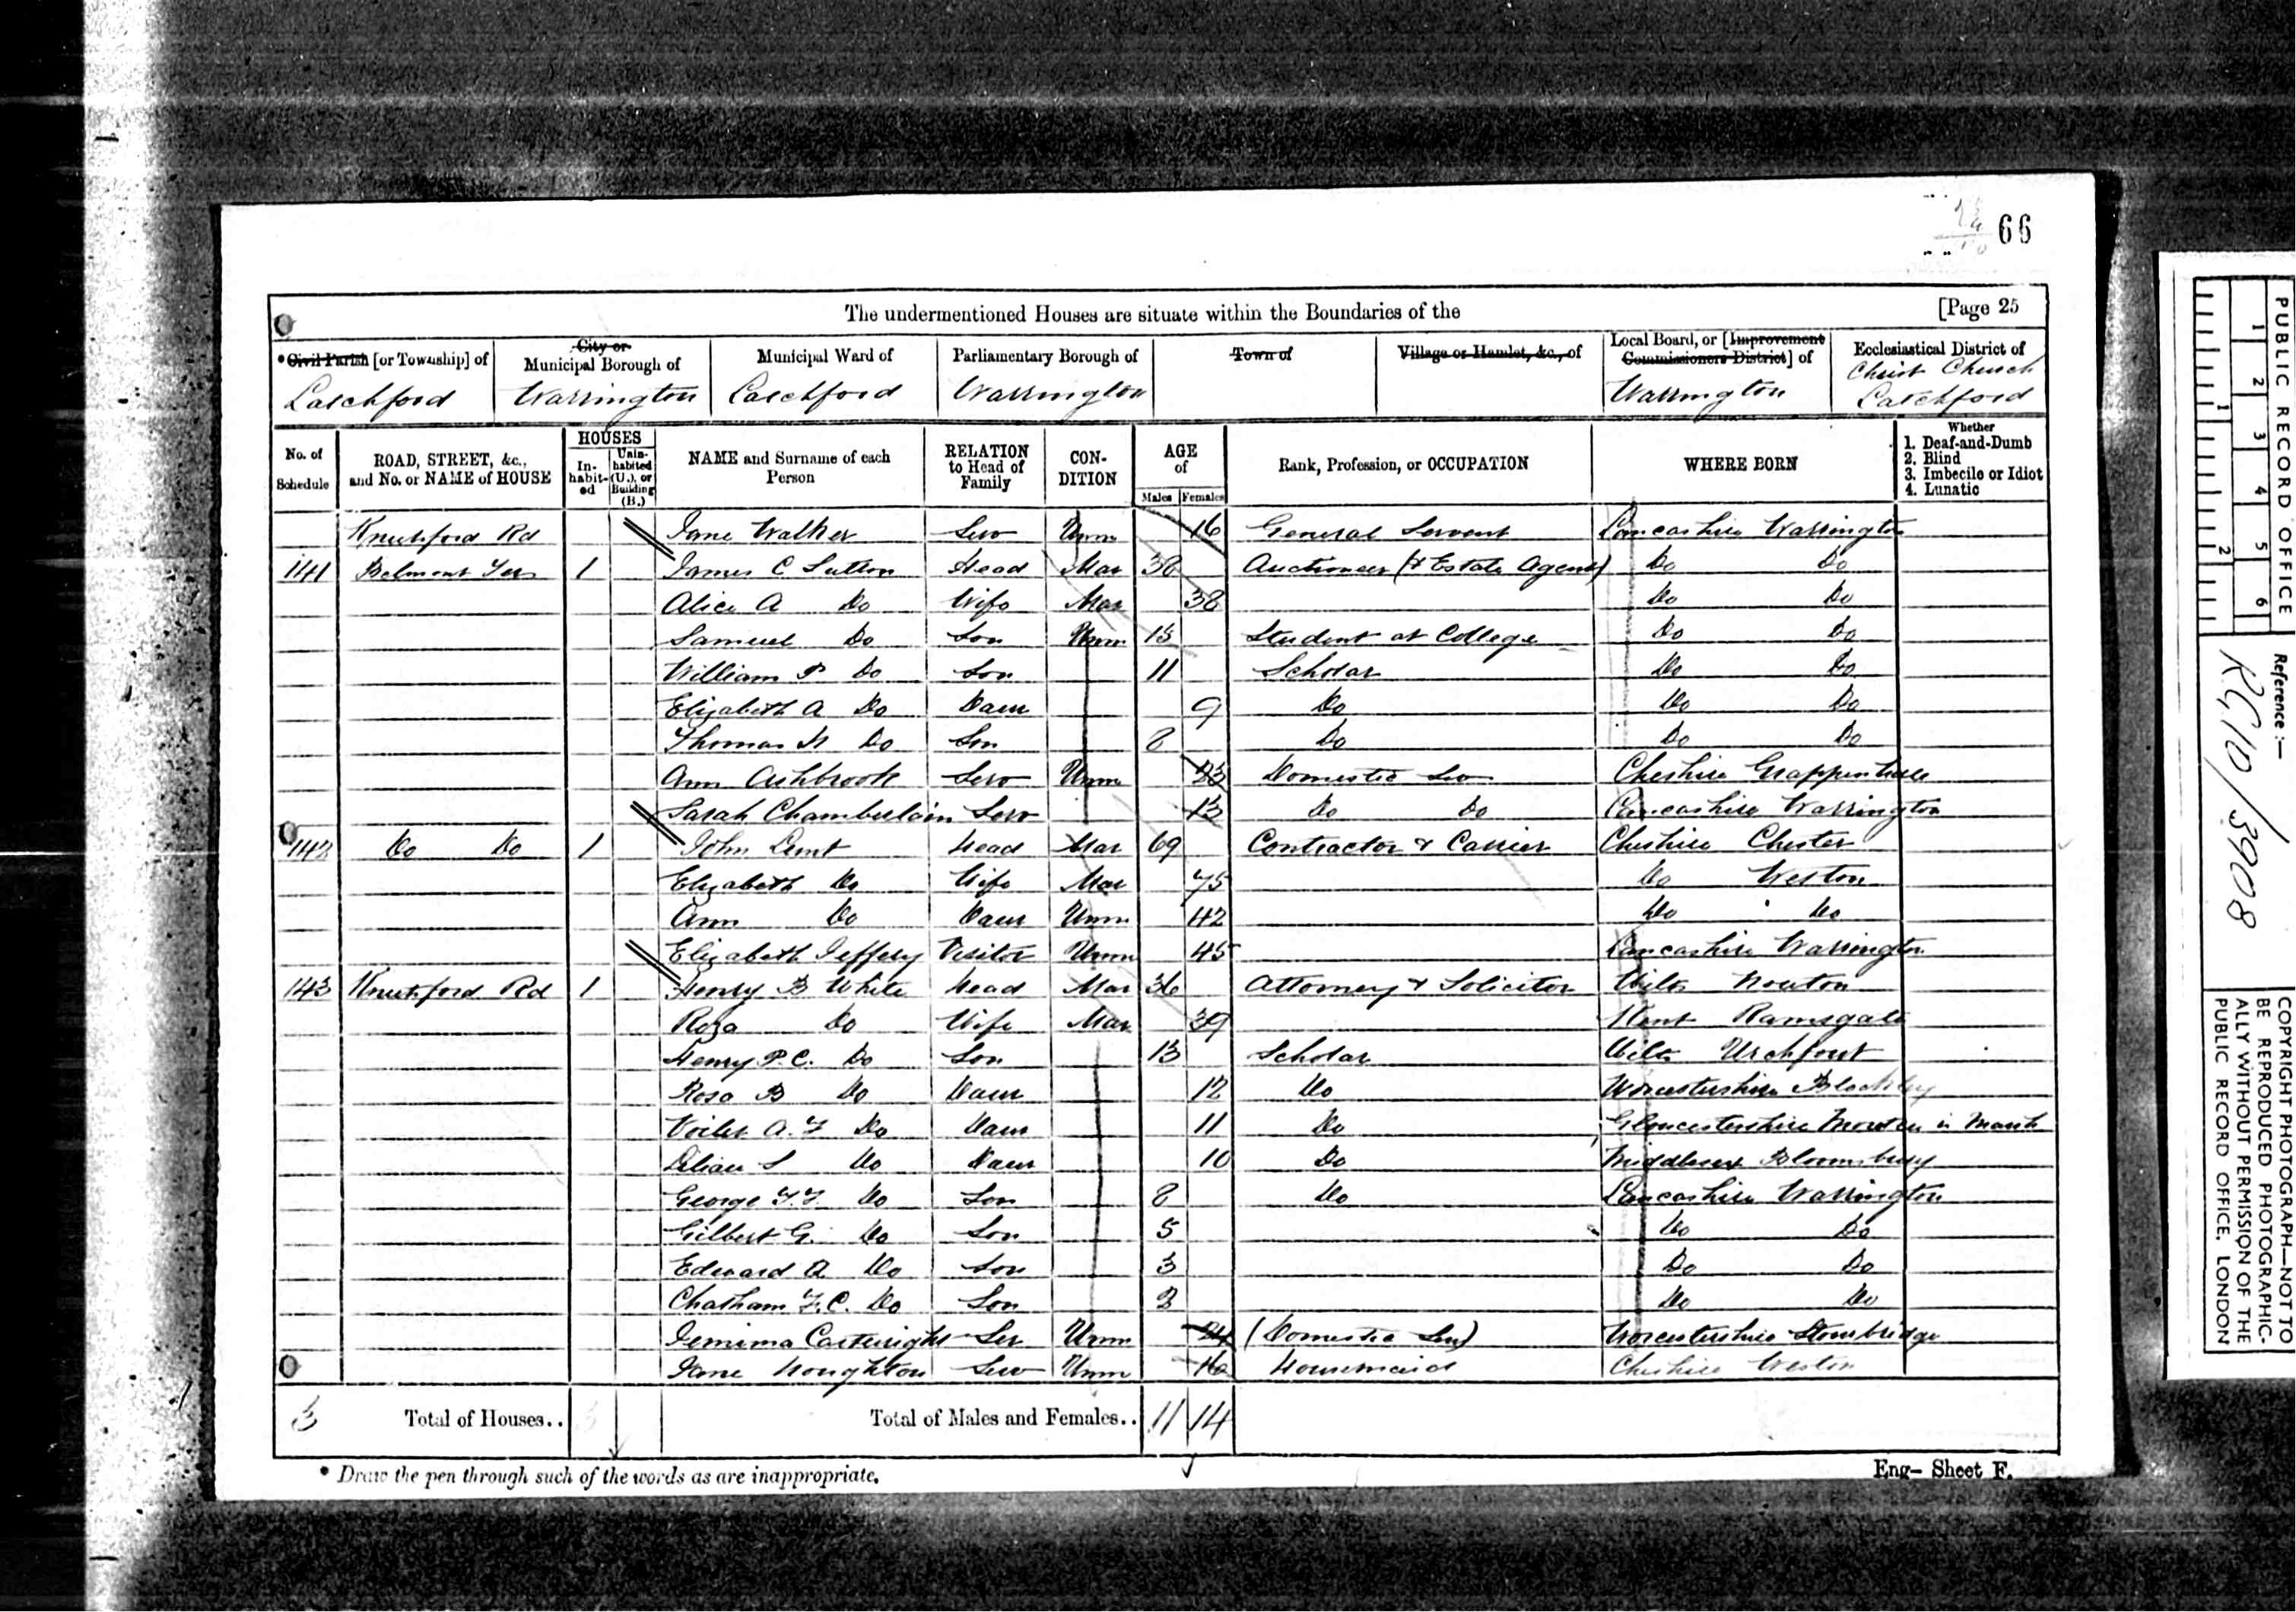 66
The undermentioned Houses are situate within the Boundaries of the [Page 25
* Civil Parish [or Township] of
Latchford
City or Municipal Borough of
Warrington
Municipal Ward of
Latchford
Parliamentary Borough of
Warrington
Town of
Village or Hamlet, &c., of
Local Board, or [Improvement Commissioners District] of
Warrington
Ecclesiastical District of
Christ Church
Latchford
No. of Schedule
ROAD, STREET, &c., and No. or NAME of HOUSE
HOUSES
In-habit-ed
Unin-habited (U.), or Building (B.)
NAME and Surname of each Person
RELATION to Head of Family
CON-DITION
AGE of
Males Females
Rank, Profession, or OCCUPATION
WHERE BORN
Whether
1. Deaf-and-Dumb
2. Blind
3. Imbecile or Idiot
4. Lunatic
Knutsford Rd Jane Walker Serv Unm 16 General Servant Lancashire Warrington
141 Belmont Ter 1 James C Sutton Head Mar 38 Auctioneer (& Estate Agent) Do Do
Alice A Do Wife Mar 38 Do Do
Samuel Do Son Unm 15 Student at College Do Do
William P Do Son 11 Scholar Do Do
Elizabeth A Do Daur 9 Do Do Do
Thomas H Do Son 8 Do Do Do
Ann Ashbrook Serv Unm Domestic Serv Cheshire Grappenhall
Sarah Chamberlain Serv 13 Do Do Lancashire Warrington
142 Do Do 1 John Lunt Head Mar 69 Contractor & Carrier Cheshire Chester
Elizabeth Do Wife Mar 75 Do Weston
Ann Do Daur Unm 42 Do Do
Elizabeth Jeffery Visitor Unm 45 Lancashire Warrington
143 Knutsford Rd 1 Henry B White Head Mar 36 Attorney & Solicitor Wilts
Roza Do Wife Mar 39 Kent Ramsgate
Henry P. C. Do Son 13 Scholar Wilts Urchfont
Rosa B Do Daur 12 Do Worcestershire Blockley
Voilet A. F Do Daur 11 Do Gloucestershire Moreton in Marsh
Lilian S Do Daur 10 Do Middlesex Bloomsbury
George F. F. Do Son 8 Do Lancashire Warrington
Gilbert G. Do Son 5 Do Do
Edward A Do Son 3 Do Do
Chatham F. C. Do Son 2 Do Do
Jemima Cartwright Ser Unm 24 (Domestic Ser) Worcestershire Stourbridge
Jane Houghton Serv Unm 16 Housemaid Cheshire Weston
3 Total of Houses.. 3 Total of Males and Females.. 11 14
* Draw the pen through such of the words as are inappropriate.
Eng- Sheet F.
PUBLIC RECORD OFFICE
1 2 3 4 5 6
1 2
Reference :-
RG10/3908
COPYRIGHT PHOTOGRAPH—NOT TO
BE REPRODUCED PHOTOGRAPHIC-
ALLY WITHOUT PERMISSION OF THE
PUBLIC RECORD OFFICE, LONDON